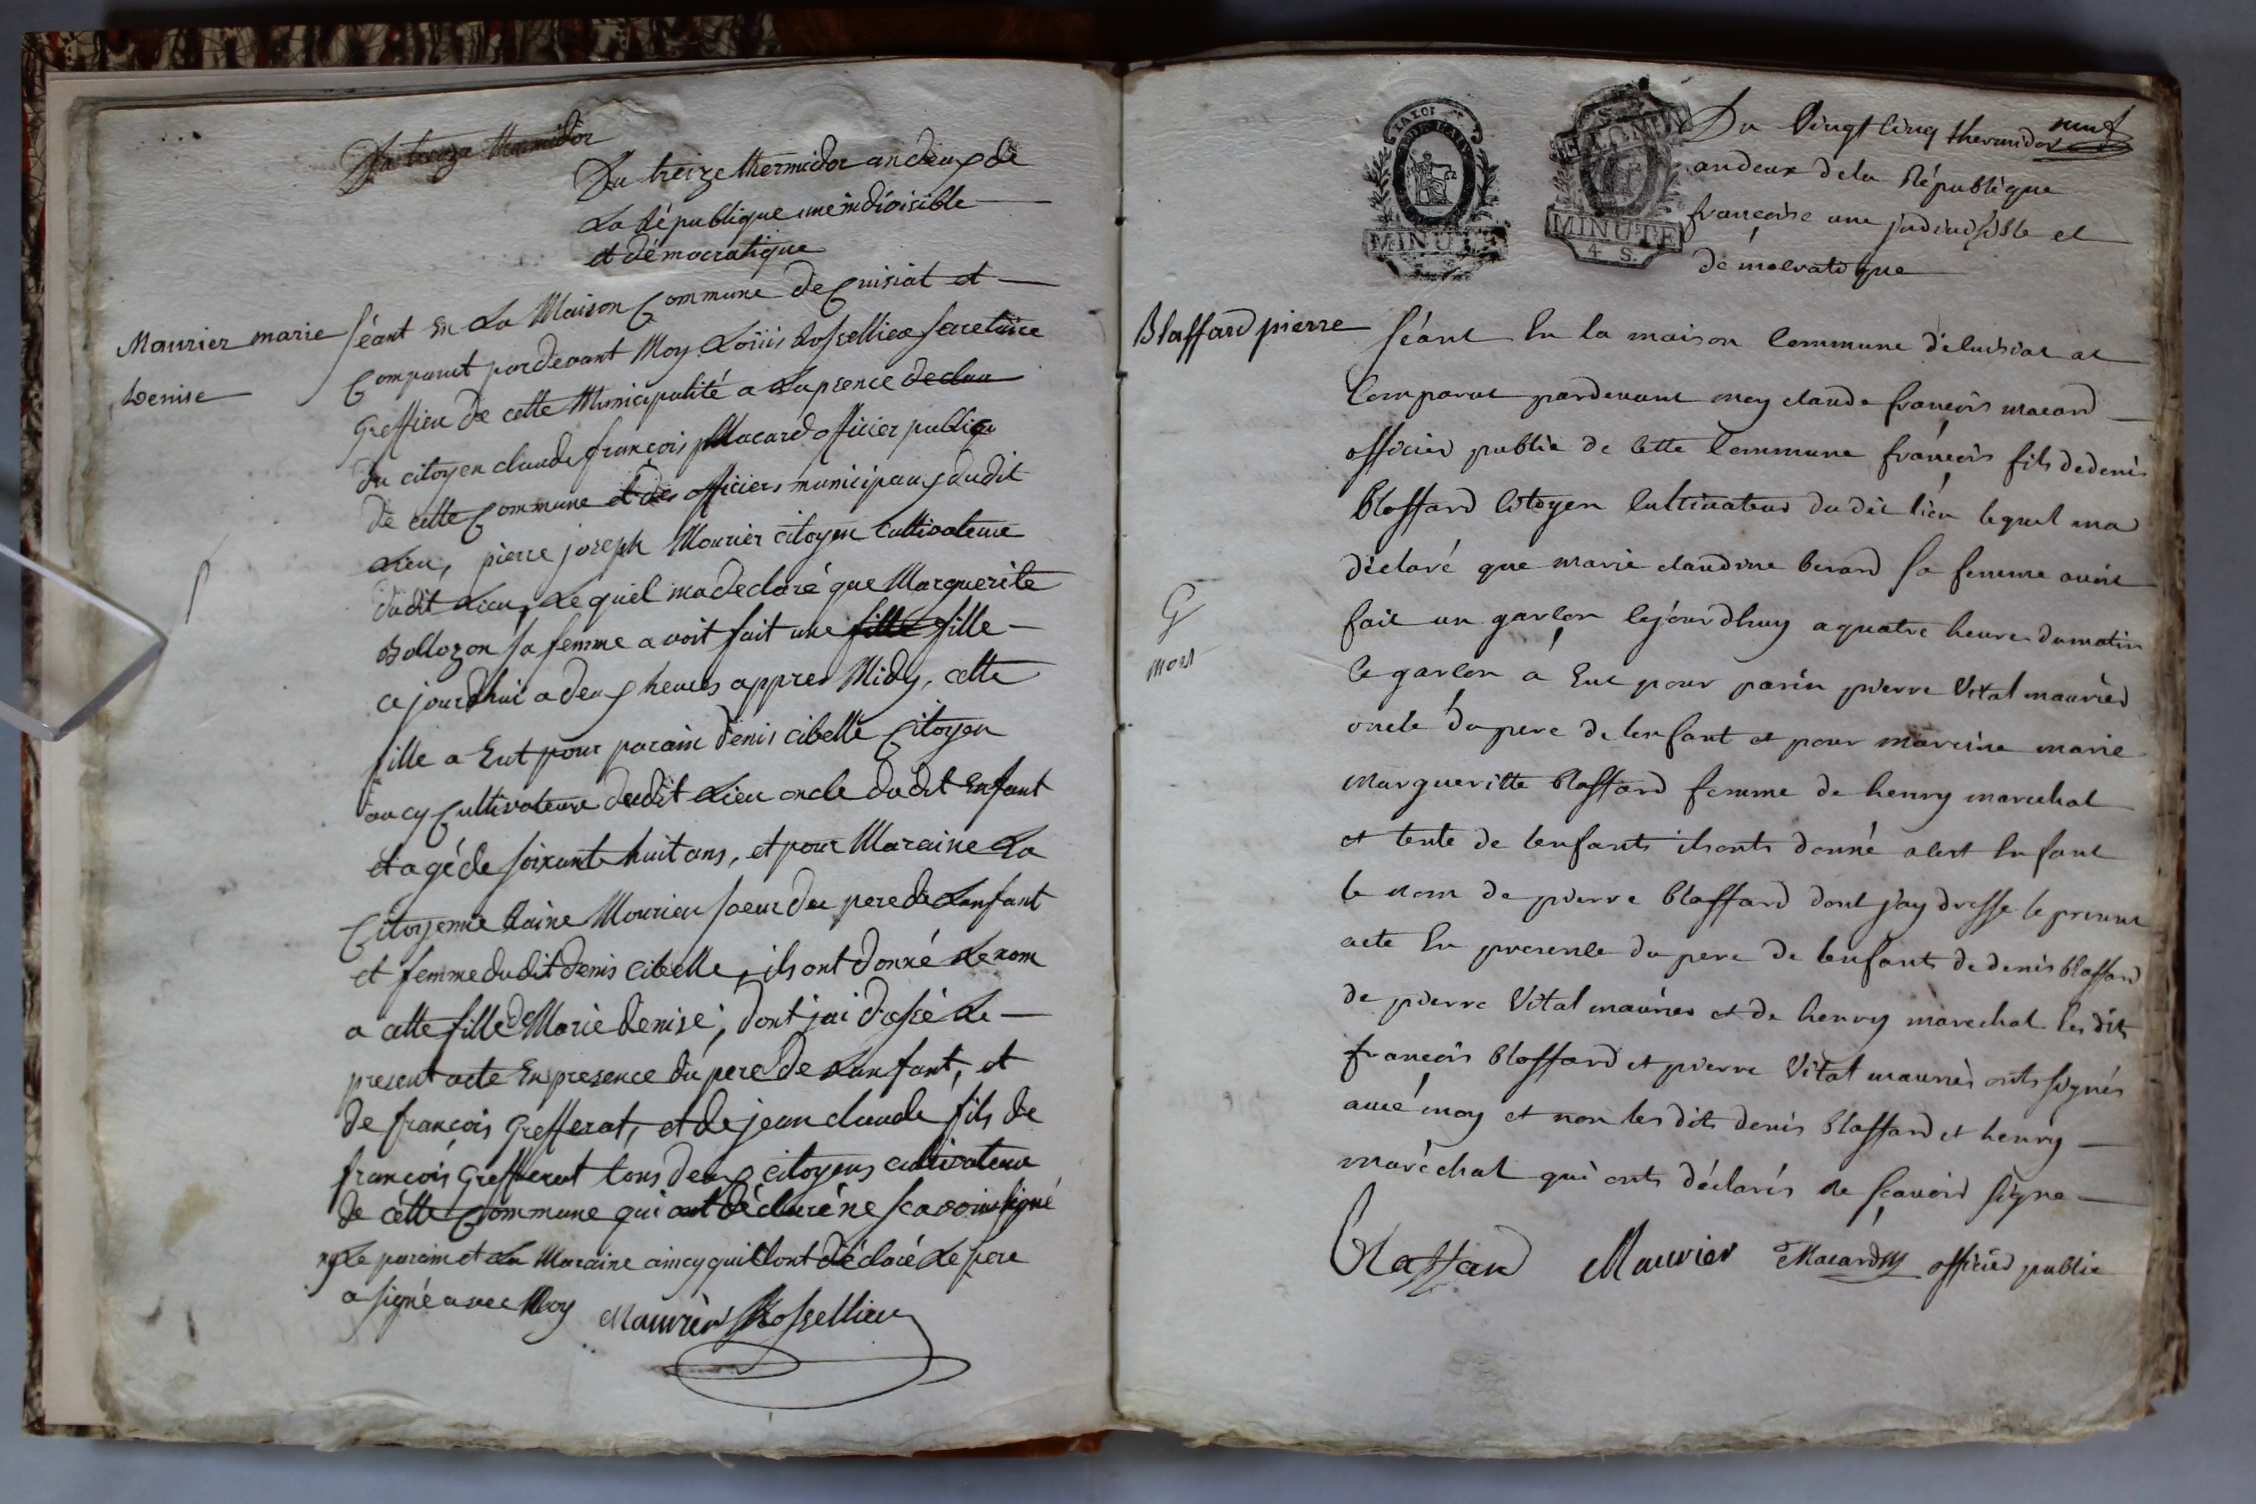 Du treize thermidor
Du treize thermidor an deux de
La République une indivisible
et démocratique
Maurier marie
Denise
Séant En La Maison Commune de Cuisiat et
Comparut pardevant Moy Louis Rossellieu secretaire
Greffieu de cette Municipalité a La presence de clau
du citoyen claude françois Macard officier public
de cette Commune et des officiers municipaux dudit
Lieu, pierre joseph Mourier citoyen cultivateure
dudit Lieu, Lequel ma declaré que Marguerite
Bollozon sa femme avoit fait une fille fille
ce jourdhui a deux heures appres Midy, cette
fille a Eut pour parain denis cibelle Citoyen
aucy Cultivateure dudit Lieu oncle dudit Enfant
et agé de soixante huit ans, et pour Maraine La
Citoyenne Claine Mourieu soeur du pere de Lenfant
et femme dudit denis cibelle, ils ont donné Le nom
a cette fille de Marie denise, dont jai dressé Le
present acte En presence du pere de Lanfant, et
de françois Grefferat, et de jean claude fils de
françois Grefferat tous deux citoyens cultivateure
de cette Commune qui ont déclaré ne scavoir signé
ny Le parain et La Maraine aincy quil lont déclaré Le pere
a signé avec Moy Maurier Rossellieu
LA LOI
MINUTE
MINUTE
4 S.
Du Vingt Cinq thermidor neuf
an deux de la République
françoise une jndivisible et
démocratique
Blaffard pierre
G
mort
Séant En la maison Commune de Cuisiat et
Comparut pardevant moy claude françois macard
officier public de Cette Commune françois fils de denis
blaffard Citoyen Cultivateur du dit lieu lequel ma
déclaré que marie claudine berard sa femme avoit
fait un garcon cejourdhuy a quatre heures du matin
ce garcon a Eut pour parin pierre Vital maurier
oncle du pere de lenfant et pour mareine marie
margueritte blaffard femme de henry marechal
et tente de lenfants ils onts donné a cest Enfant
le nom de pierre blaffard dont jay dresse le present
acte En presence du pere de lenfants de denis blaffard
de pierre Vital maurier et de henry marechal les dits
françois blaffard et pierre Vital maurier onts signés
avec moy et non les dits denis blaffard et henry
maréchal qui onts déclarés ne scavoir signe
Blaffard Maurier Macard officier public